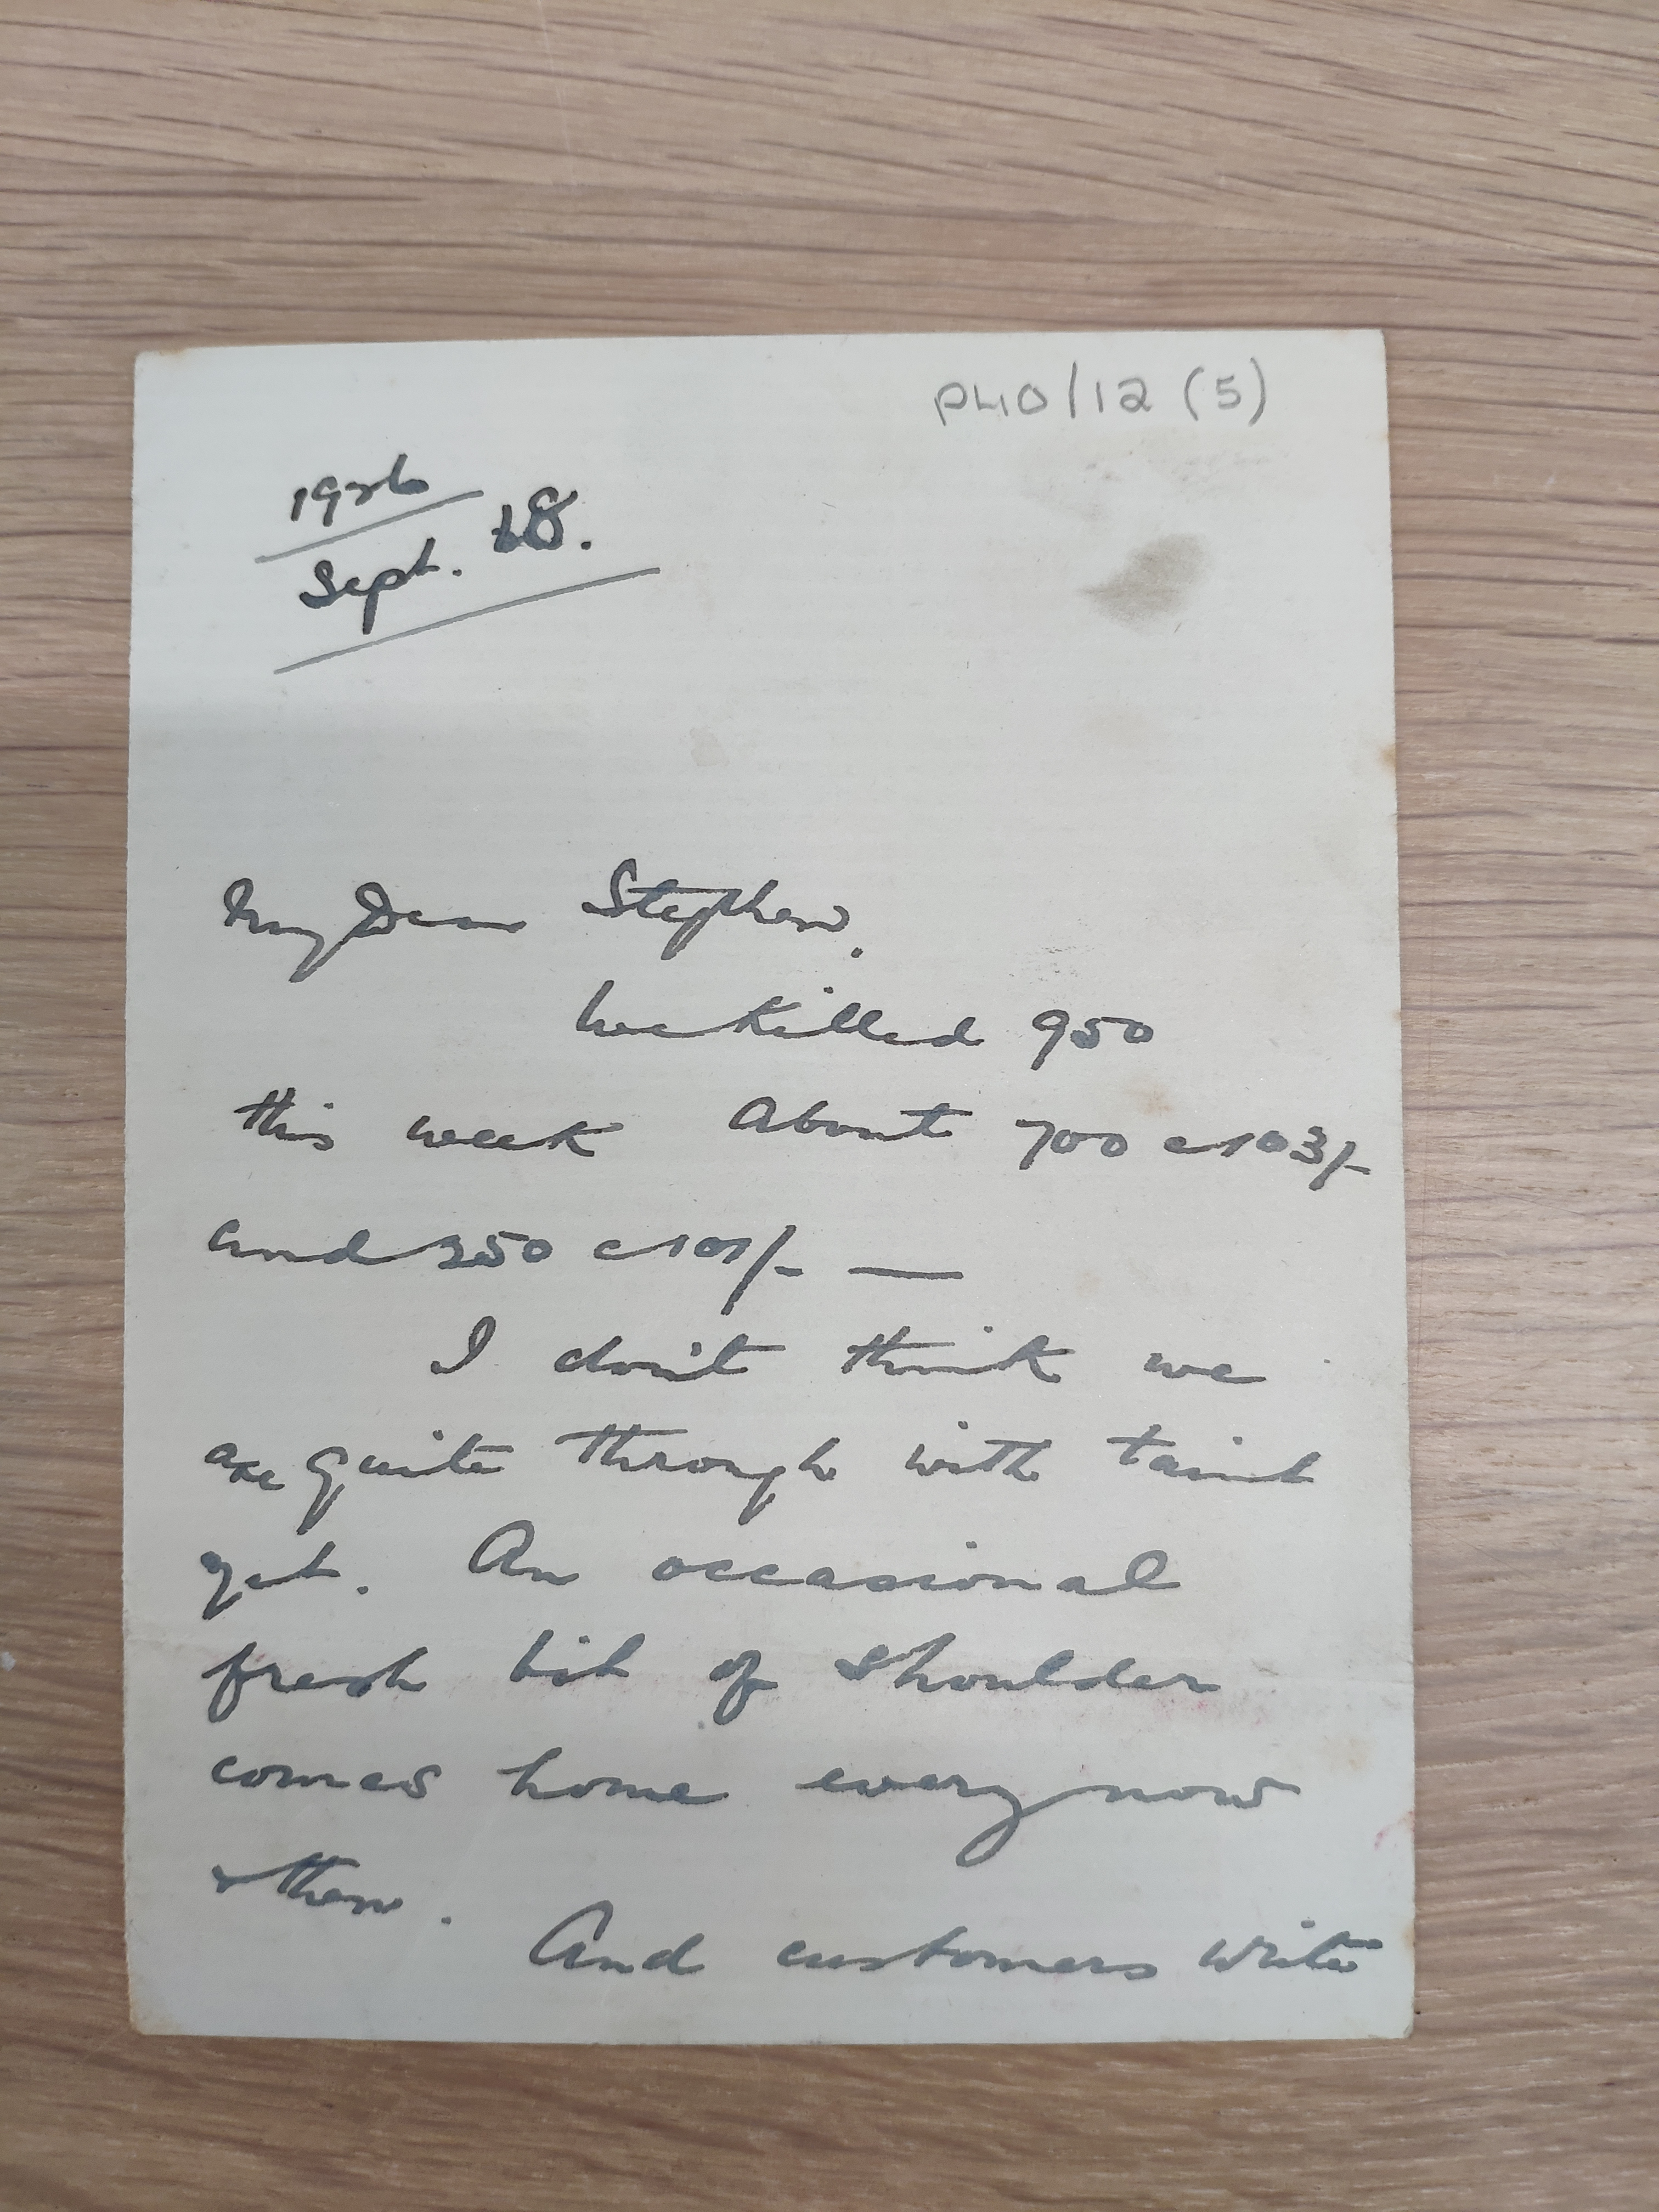 P40/12 (5)
1926
Sept. 18.
My Dear Stephen.
We killed 950
this week About 700 @ 103/-
and 250 @ 101/- —
I don't think we
are quite through with taint
yet. An occasional
fresh bit of shoulder
comes home every now
& then.
And customers write